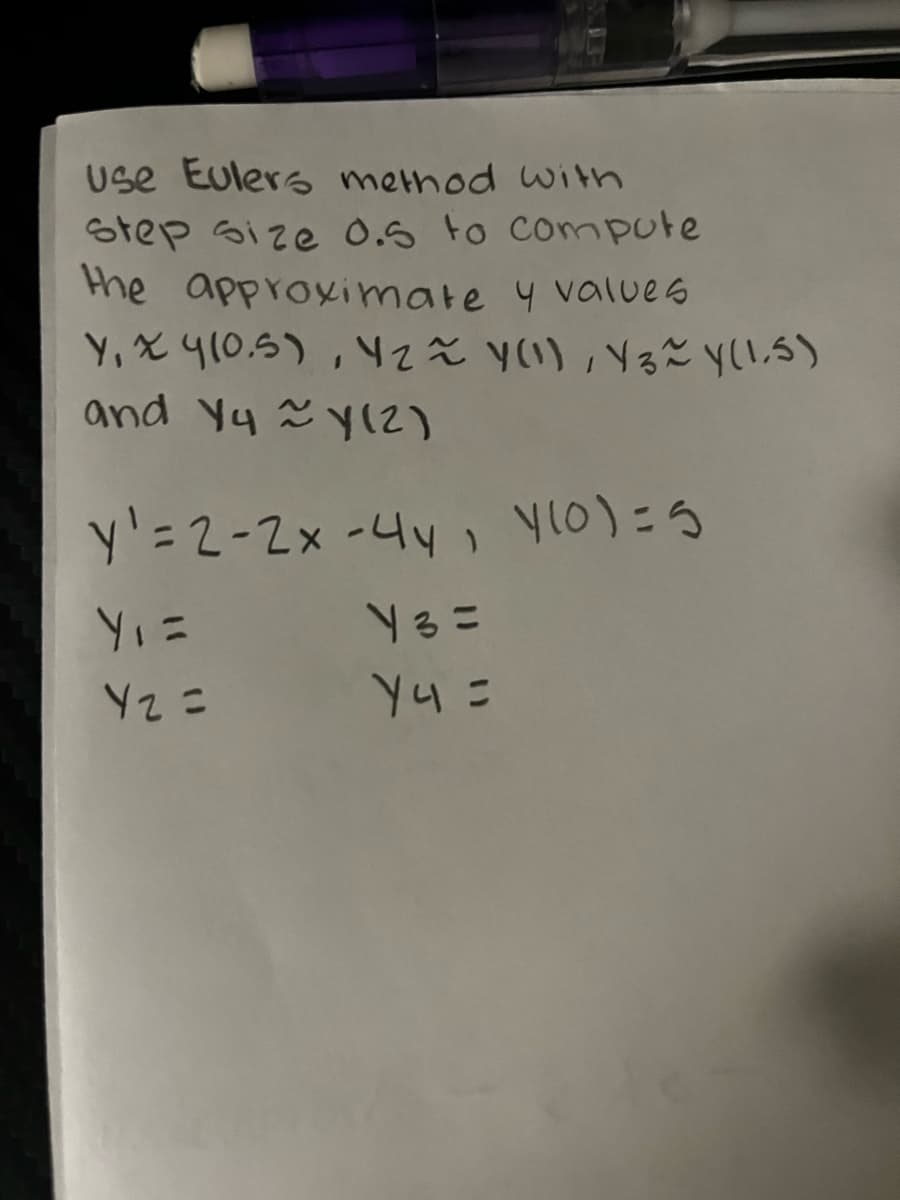 Use Eulers method with
step size 0.5 to compute
the approximate y values
y₁ ≈ y(0.5), y₂ ≈ y(1), y₃ ≈ y(1.5)
and y₄ ≈ y(2)
y' = 2-2x-4y, y(0)=5
y₁ = y₃ =
y₂ = y₄ =